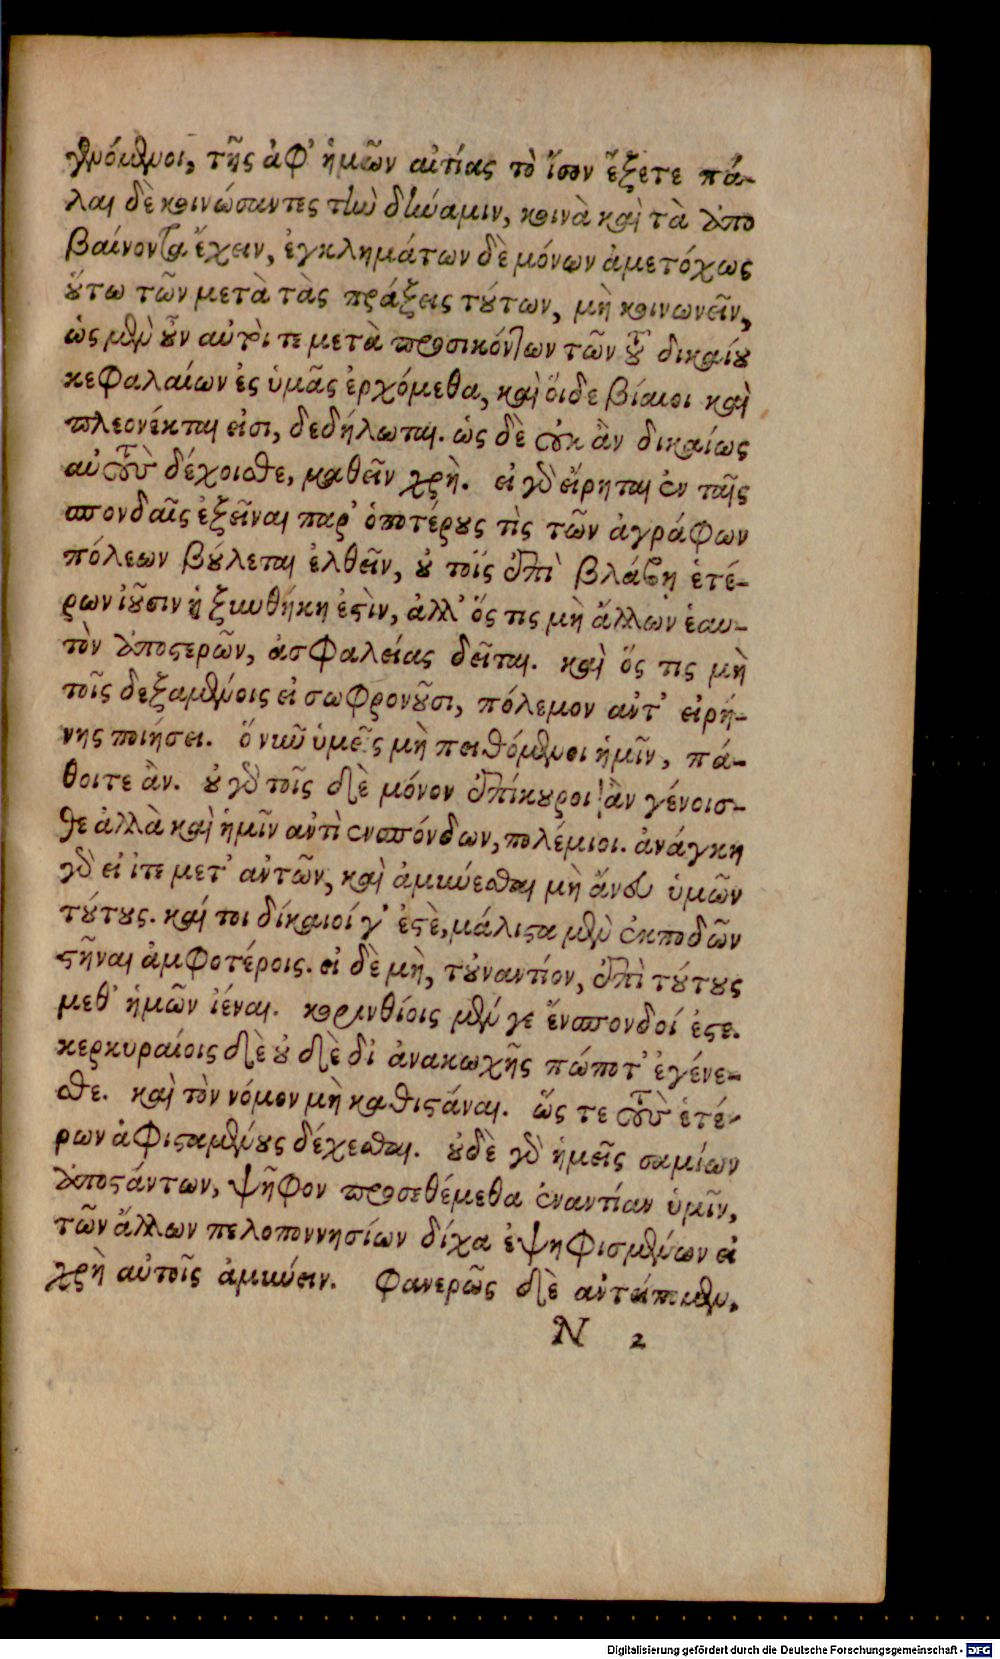 γενόμενοι, τῆς ἀφ' ἡμῶν αἰτίας τὸ ἴσον ἕξετε πά-
λαι δὲ κοινώσαντες τὴν δύναμιν, κοινὰ καὶ τὰ ἀπο
βαίνοντα ἔχειν, ἐγκλημάτων δὲ μόνων ἀμετόχως
οὕτω τῶν μετὰ τὰς πράξεις τούτων, μὴ κοινωνεῖν,
ὡς μὲν οὖν αὐτοί τε μετὰ προσικόντων τῶν τοῦ δικαίου
κεφαλαίων ἐς ὑμᾶς ἐρχόμεθα, καὶ οἵδε βίαιοι καὶ
πλεονέκται εἰσι, δεδήλωται. ὡς δὲ οὐκ ἂν δικαίως
αὐτοὺς δέχοισθε, μαθεῖν χρὴ. εἰ γὰρ εἴρηται ἐν ταῖς
σπονδαῖς ἐξεῖναι παρ' ὁποτέρους τὶς τῶν ἀγράφων
πόλεων βούλεται ἐλθεῖν, οὐ τοῖς ἐπὶ βλάβῃ ἑτέ-
ρων ἰοῦσιν ἡ ξυνθήκη ἐστὶν, ἀλλ' ὅς τις μὴ ἄλλων ἑαυ-
τὸν ἀποστερῶν, ἀσφαλείας δεῖται. καὶ ὅς τις μὴ
τοῖς δεξαμένοις εἰ σωφρονοῦσι, πόλεμον ἀντ' εἰρή-
νης ποιήσει. ὃ νῦν ὑμεῖς μὴ πειθόμενοι ἡμῖν, πά-
θοιτε ἂν. οὐ γὰρ τοῖς δὲ μόνον ἐπίκουροι ἂν γένοισ-
θε ἀλλὰ καὶ ἡμῖν ἀντὶ ἐνσπόνδων, πολέμιοι. ἀνάγκη
γὰρ εἰ ἴτε μετ' αὐτῶν, καὶ ἀμύνεσθαι μὴ ἄνευ ὑμῶν
τούτους. καί τοι δίκαιοί γ' ἐστὲ, μάλιστα μὲν ἐκποδῶν
στῆναι ἀμφοτέροις. εἰ δὲ μὴ, τοὐναντίον, ἐπὶ τούτους
μεθ' ἡμῶν ἰέναι. κορινθίοις μέν γε ἔνσπονδοί ἐστε.
κερκυραίοις δὲ οὐ δὲ δι' ἀνακωχῆς πώποτ' ἐγένε-
σθε. καὶ τὸν νόμον μὴ καθιστάναι. ὥς τε τοὺς ἑτέ-
ρων ἀφισταμένους δέχεσθαι. οὐδὲ γὰρ ἡμεῖς σαμίων
ἀποστάντων, ψῆφον προσεθέμεθα ἐναντίαν ὑμῖν,
τῶν ἄλλων πελοποννησίων δίχα ἐψηφισμένων εἰ
χρὴ αὐτοῖς ἀμύνειν. φανερῶς δὲ ἀντείπομεν.
N 2
Digitalisierung gefördert durch die Deutsche Forschungsgemeinschaft - DFG